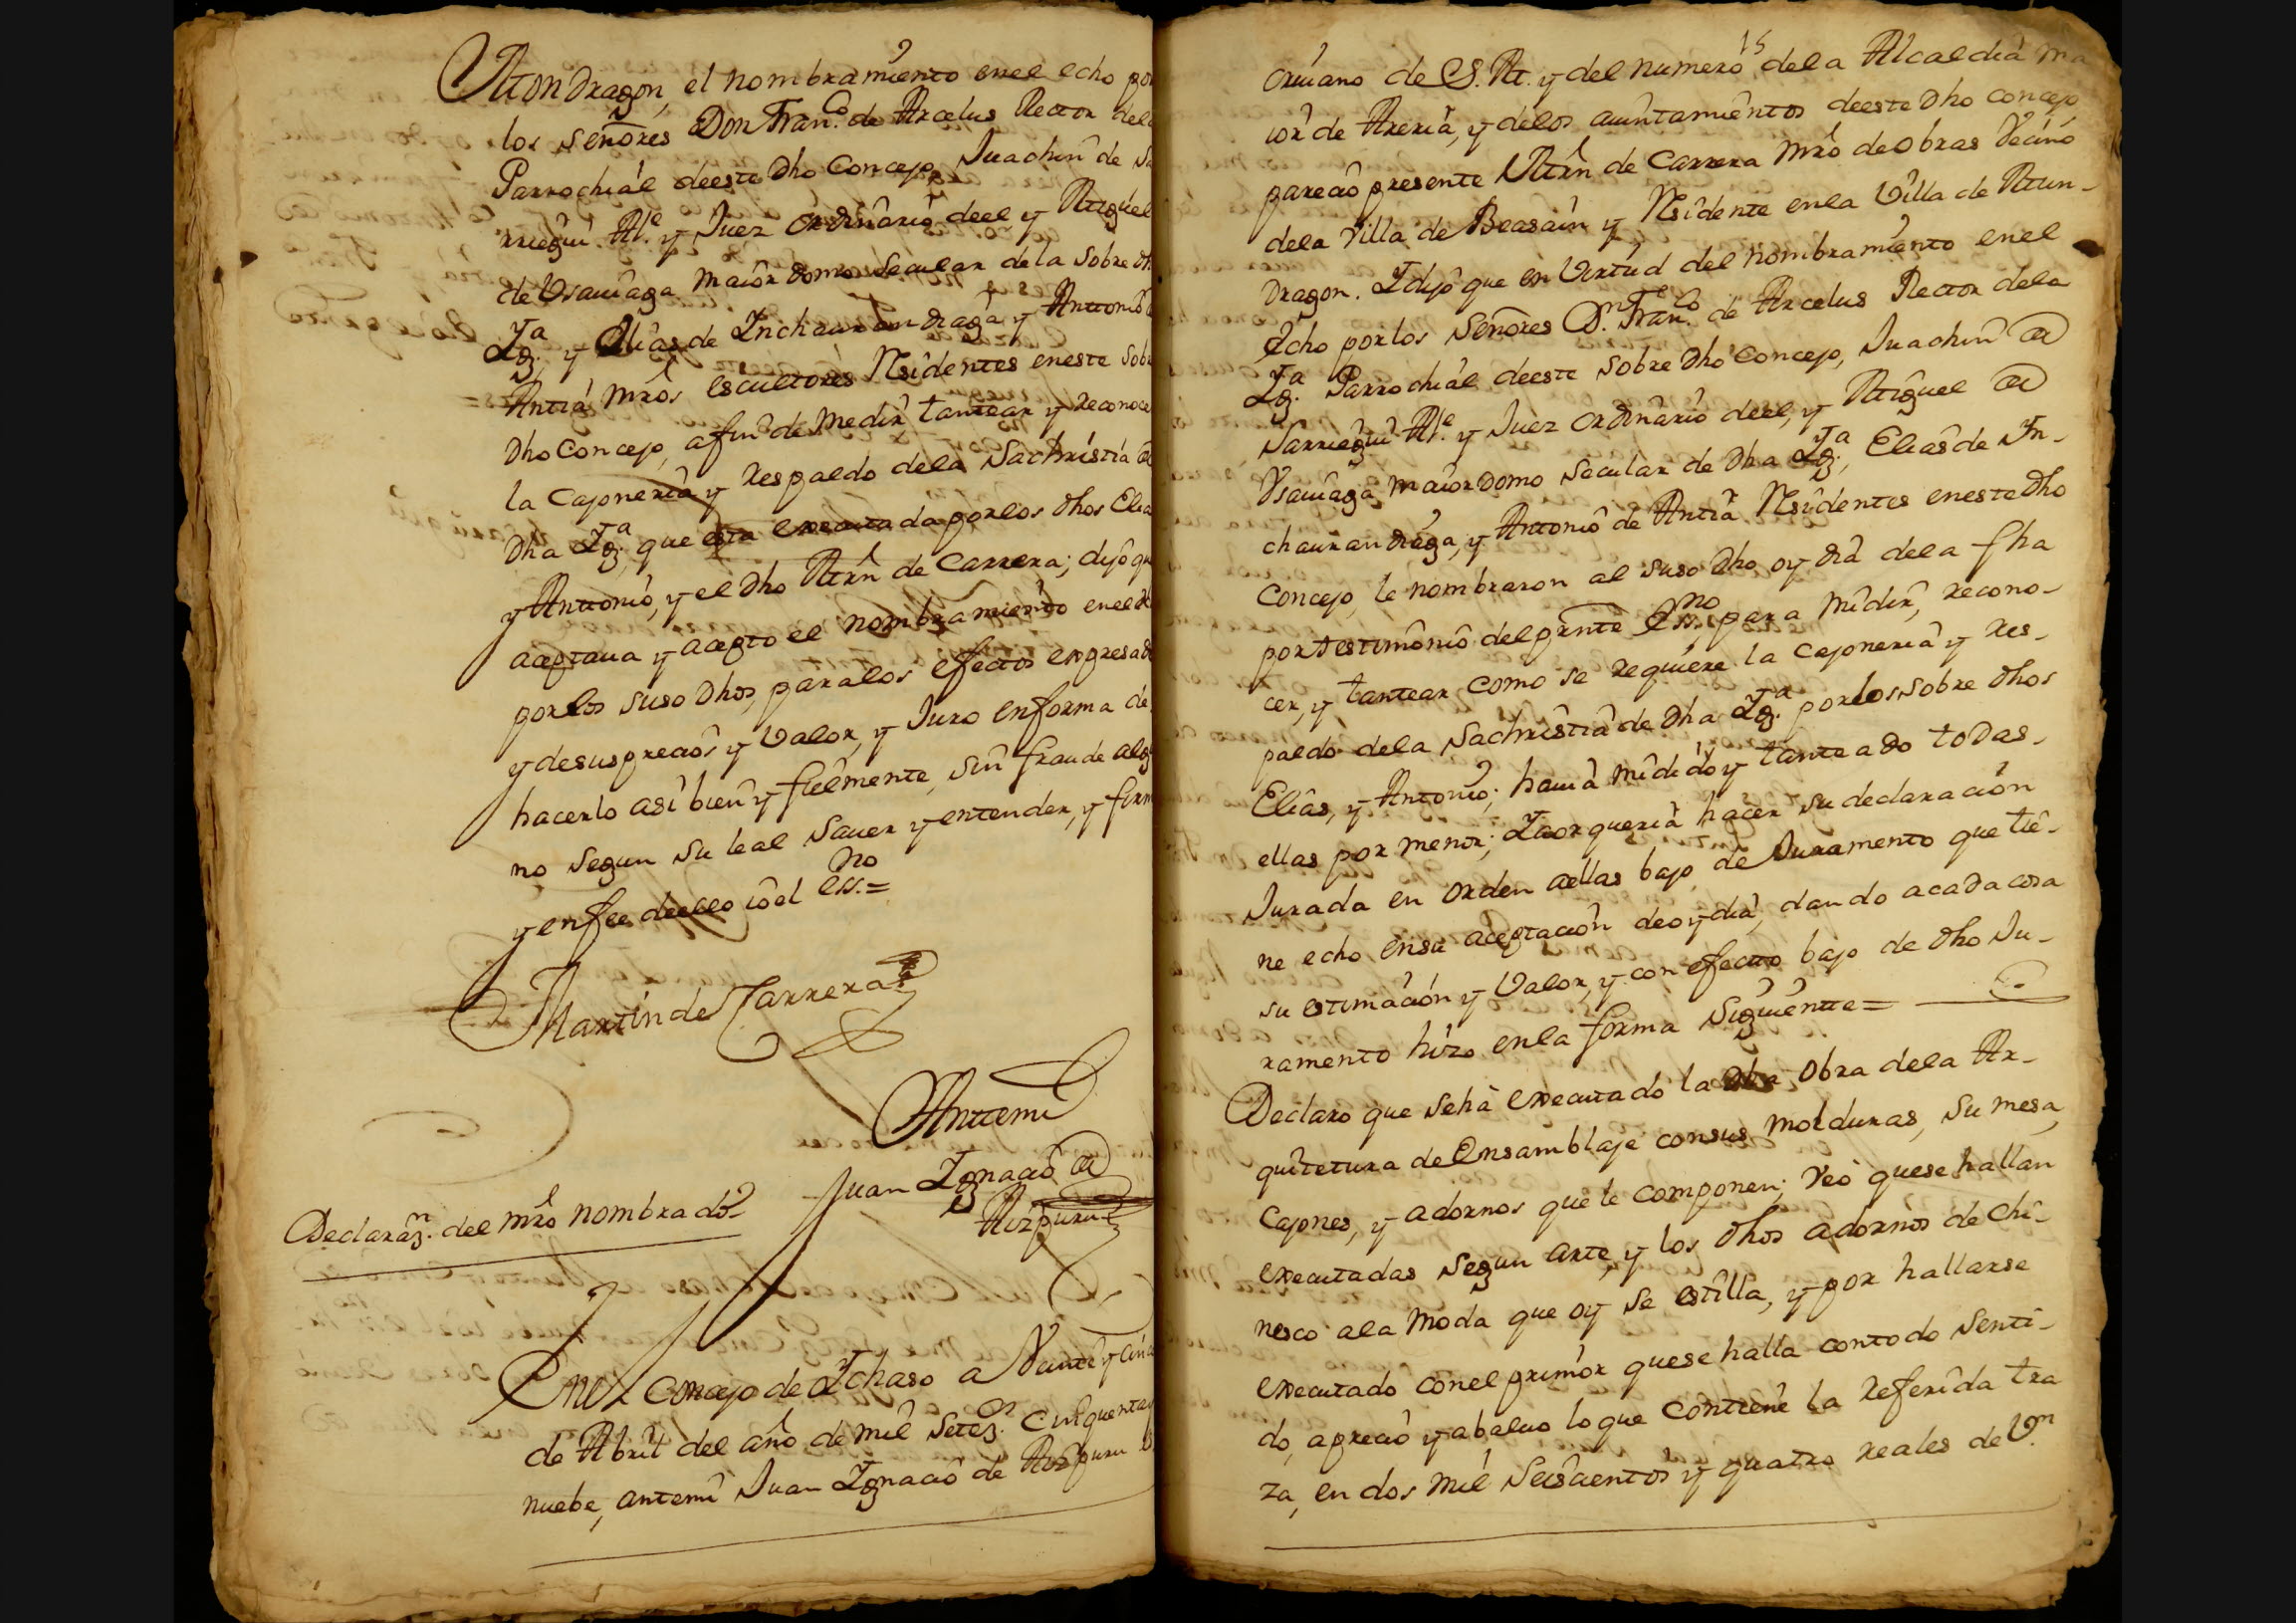 Mondragon, el nombramiento en el echo por
los Señores Don Fran.co de Arcelus Rector dela
Parrochiál deeste Dho Concejo, Juachin de Sa
rriegui Al.e y Juez ordinario deel y Miguel
de Usauiaga maiordomo Secular dela Sobre dh
Yg.a y Elias de Inchaurandiaga y Antonio d
Antia Mrós escultores Rsidentes eneste Sobre
Dho Concejo, afin de medir tantear y reconoce
la Cajoneria y respaldo dela Sachristia de
Dha Yg.a que esta executada porlos dhos Elia
y Antonio, y el Dho Mrn de Carrera; dijo qu
aceptaua y acepto el nombramiento en el
por los suso Dhos, para los efectos expresad
y desus precios y Valor, y Juro enforma de
hacerlo asi bien y fielmente, sin fraude alg
no segun su leal Sauer y entender, y firm
y enfee deello io el Ess.no =
Martin de Carrera
Antemi
Juan Ignacio de
Aizpuru
Declaraz.n del mro nombrado
Enel Concejo de Ychaso a Veinte y cinc
de Abril del año de mil Setez.s Cinquenta y
nuebe, antemi Juan Ignacio de Aizpuru Es
15
criuano de S. M. y del numero dela Alcaldia ma
ior de Areria, y delos aiuntamientos deeste Dho Concejo
parecio presente Mrn de Carrera mró de obras Vecino
dela Villa de Beasain y Rsidente enla Villa de Mon-
dragon. Y dijo que en Virtud del nombramiento en el
echo por los Señores D.n Fran.co de Arcelus Rector dela
Yg.a Parrochiál deeste Sobre Dho Concejo, Juachin de
Sarriegui Al.e y Juez ordinario deel, y Miguel de
Usauiaga maiordomo Secular de Dha Yg.a, Elias de Yn-
chaurandiaga, y Antonio de Antia Rsidentes eneste Dho
Concejo, le nombraron al suso Dho oy dia dela fha
por testimonio del prnte Ess.no, para midir, recono-
cer, y tantear como se requiere la Cajoneria y res-
paldo dela Sachristia de Dha Yg.a por los sobre dhos
Elias, y Antonio; hauia midido y tanteado todas
ellas por menor; Y aora queria hacer su declaracion
Jurada en orden aellas bajo de Juramento que tie-
ne echo ensu aceptacion de oy dia, dando acada cosa
su estimacion y Valor, y con efecto bajo de dho Ju-
ramento hizo enla forma Siguiente=
Declaro que seha executado la Obra dela Ar-
quitetura de Ensamblaje consus molduras, su mesa,
Cajones, y adornos que le componen; veo quese hallan
executadas Segun arte, y los dhos adornos de Chi-
nesco ala moda que oy se estilla, y por hallarse
executado conel primor quese halla contodo Senti-
do, aprecio y abaluo lo que contiene la referida tra
za, en dos mil Seiscientos y quatro reales de V.n